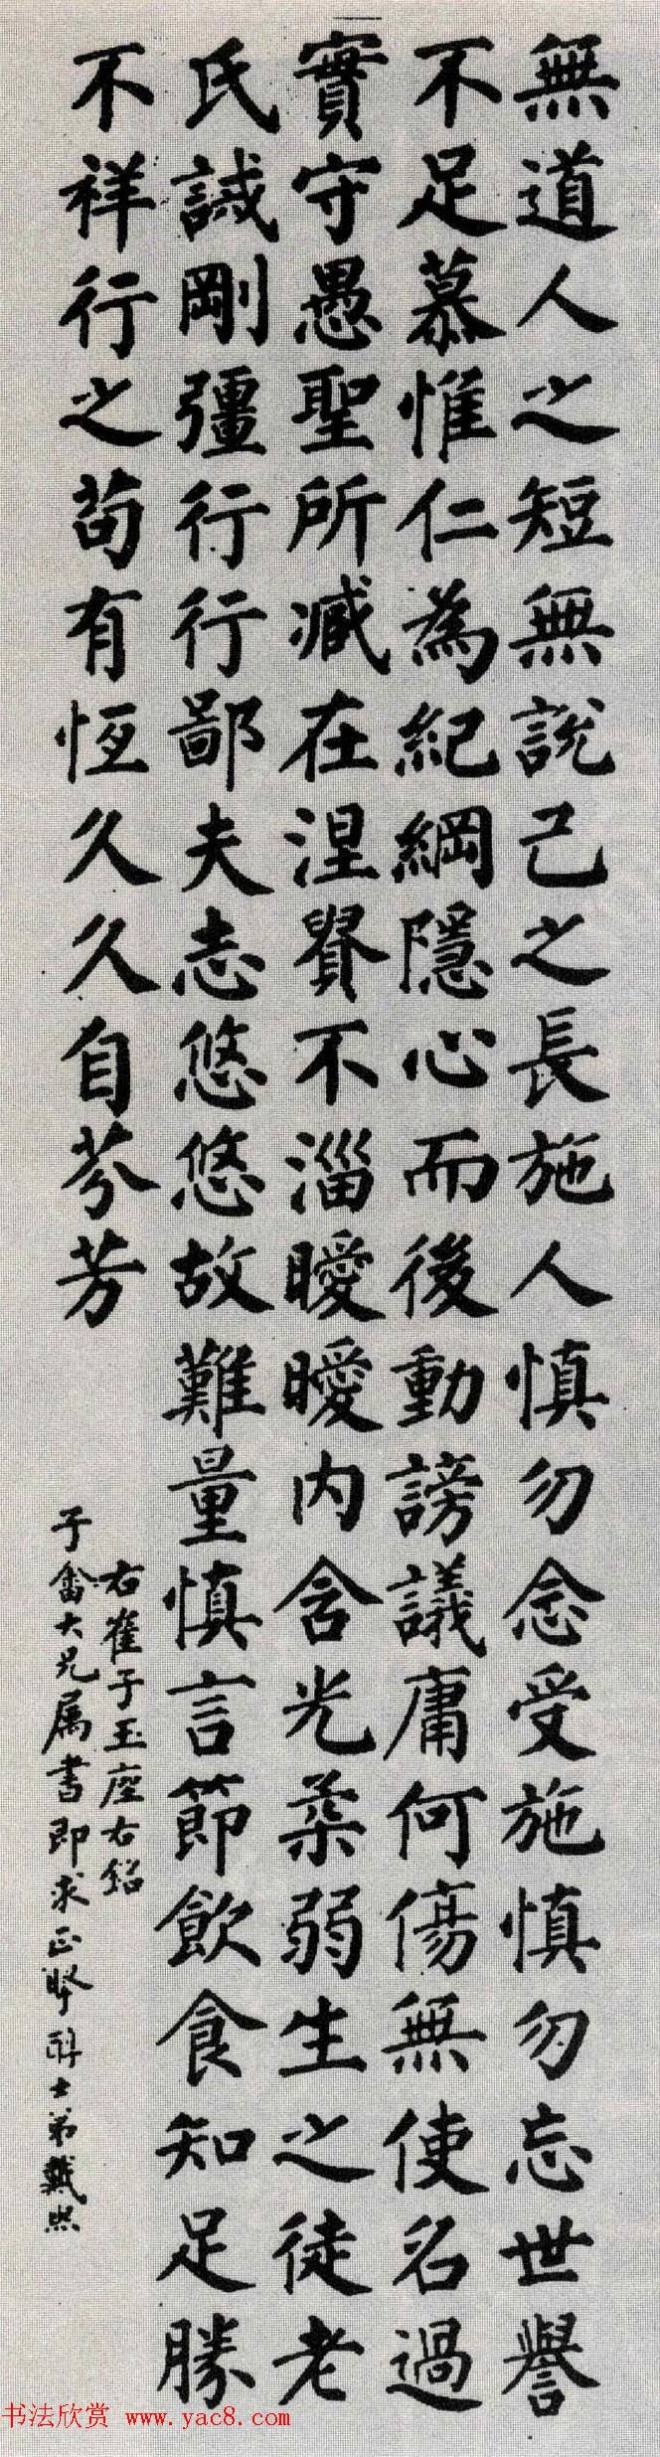 無道人之短無說己之長施人慎勿念受施慎勿忘世譽
不足慕惟仁為紀綱隱心而後動謗議庸何傷無使名過
實守愚聖所臧在涅貴不淄曖曖内含光柔弱生之徒老
氏誡剛彊行行鄙夫志悠悠故難量慎言節飲食知足勝
不祥行之苟有恆久久自芬芳
右崔子玉座右銘
子畬大兄属書即求正 醇士弟戴熙
书法欣赏 www.yac8.com